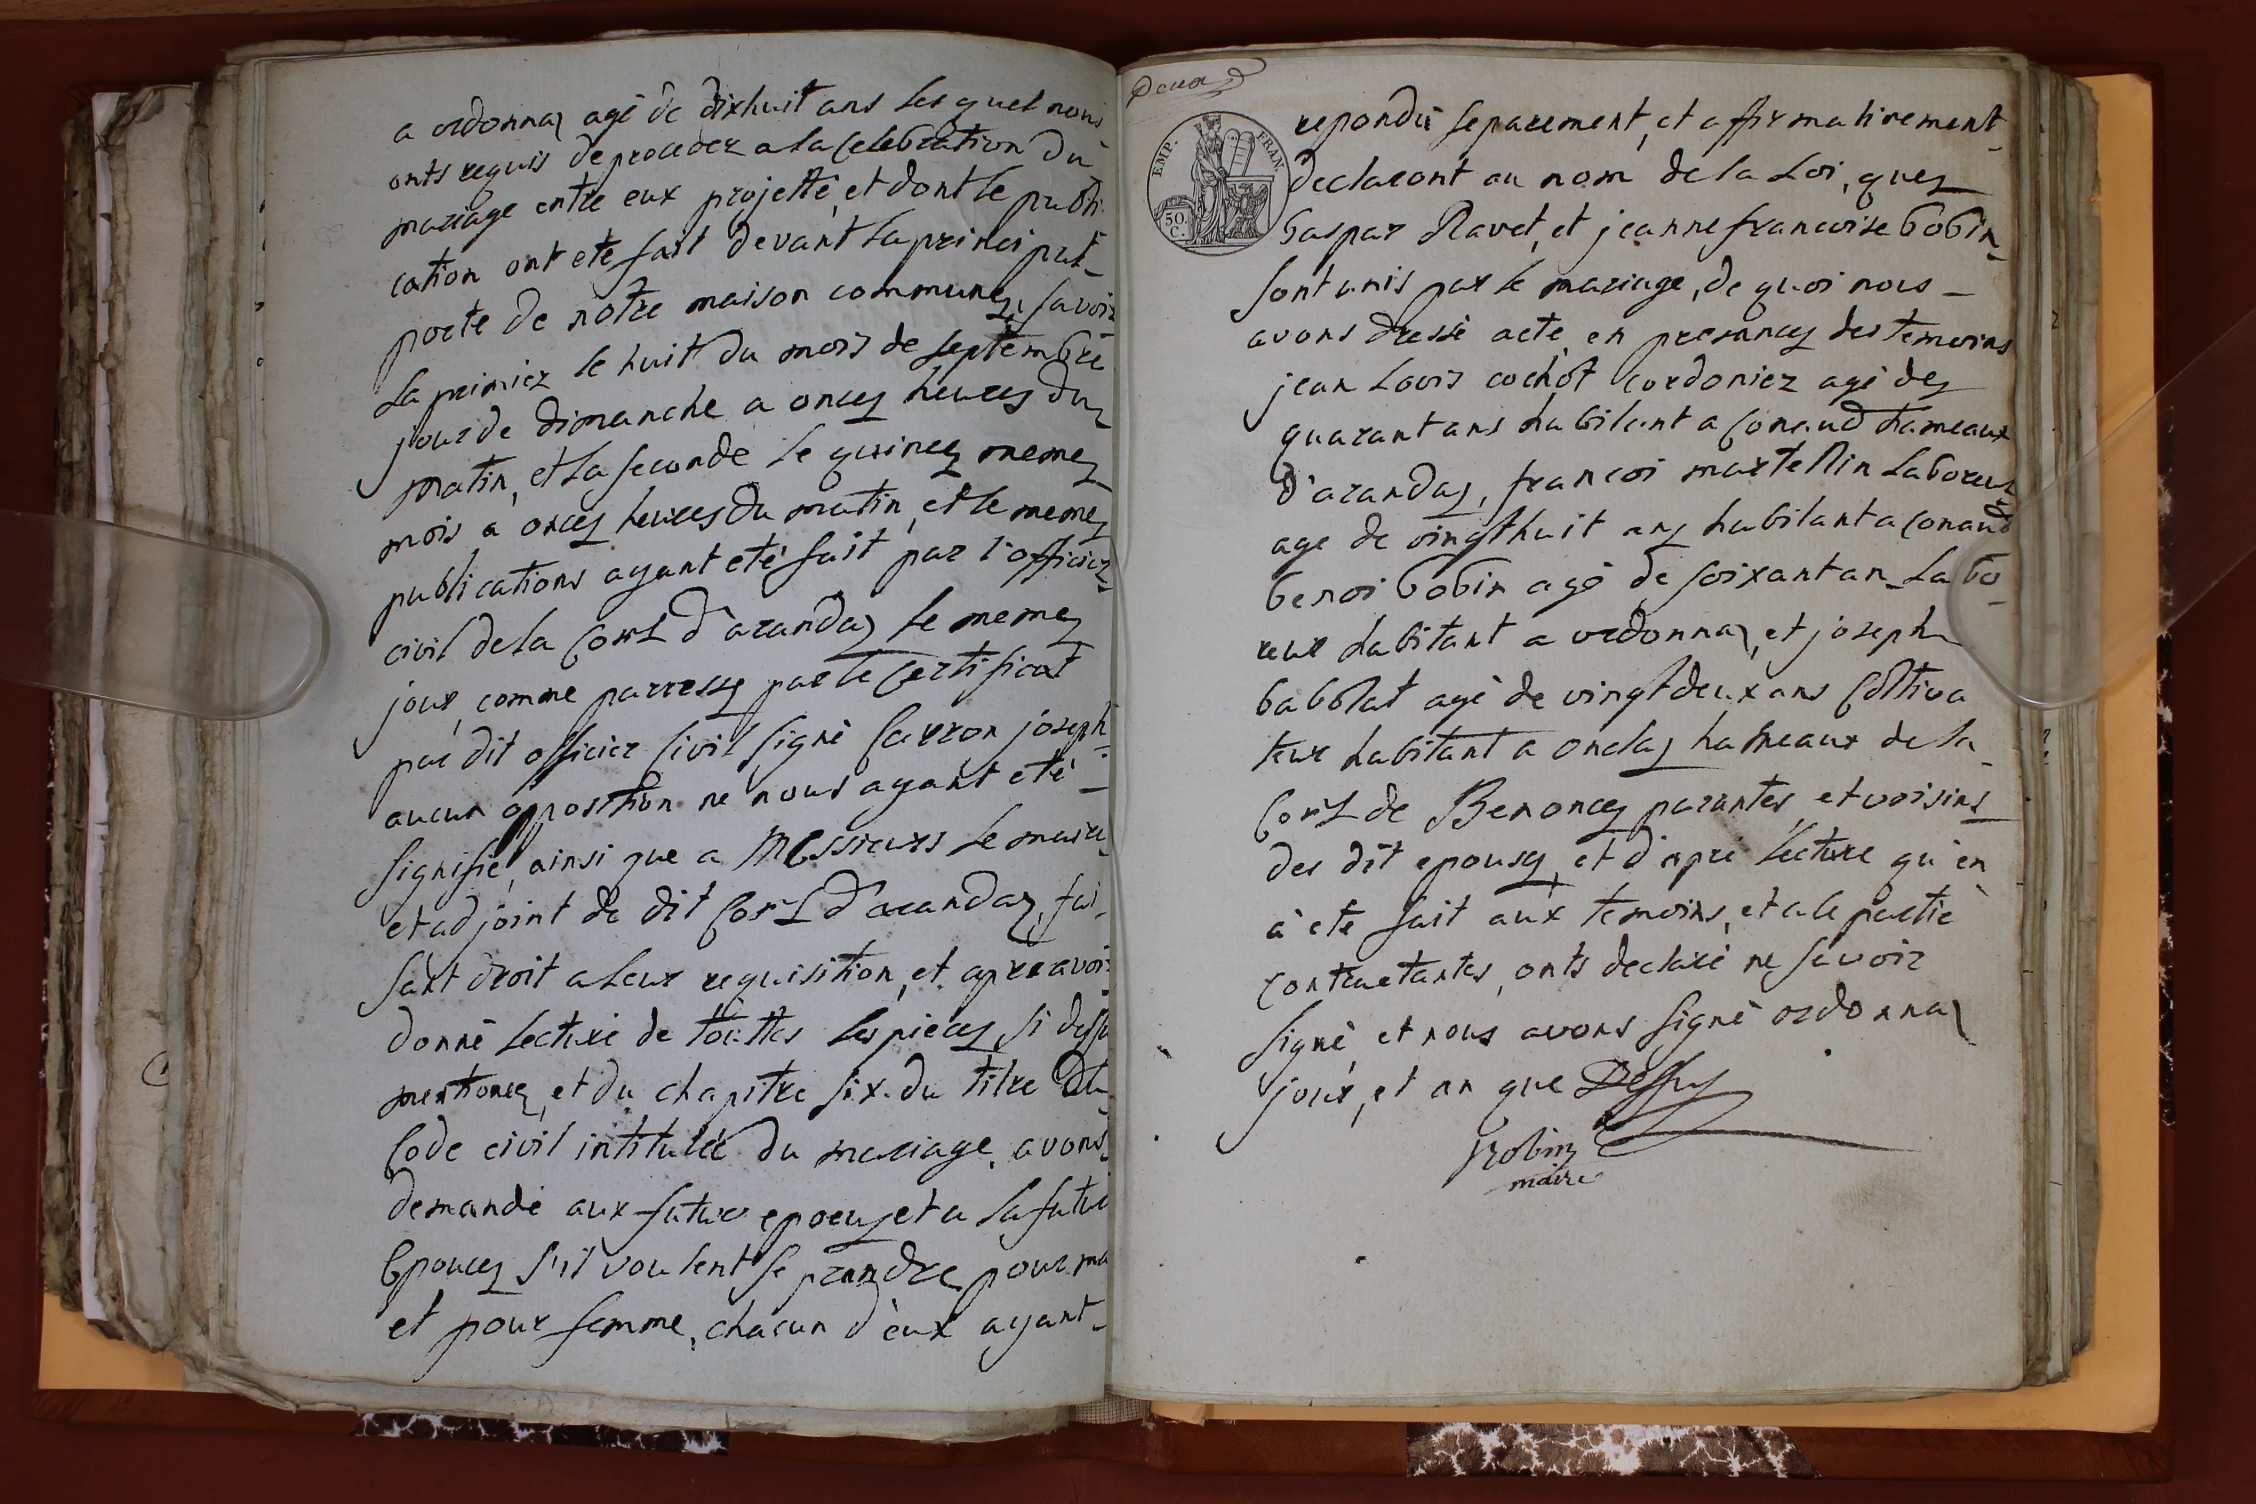 a ordonnaz agé de dixhuit ans les quel nous
onts requis de proceder a la Celebration du
mariage entre eux projetté, et dont le publi-
cation ont eté fait devant la principal
porte de notre maison commune, savoir
la primier le huit du mois de septembre
jour de dimanche a onces heures du
matin, et la seconde le quince meme
mois a onces heures du matin, et le meme
publications ayant eté fait par l'officier
civil de la Com d'arandaz le meme
jour, comme parresse par le Certificat
par dit officier Civil signé Carron joseph
aucun opposition ne nous ayant eté
signifié, ainsi que a Messieurs le maire
et adjoint de dit Com d'arandaz, fai-
sant droit a leur requisition, et apre avoir
donné lecture de touttes les pieces si dessu
mentionez, et du chapitre six du titre du
Code civil intitulée du mariage, avons
demandé aux futur epoeuz et a la futur
Epouces s'il voulent se prandre pour ma
et pour femme, chacun d'eux ayant
Deux
EMP. FRAN.
50. C.
repondu separement, et affirmativement
declaront au nom de la Loi, que
Gaspar Ravet, et jeanne francoise bobin
sont unis par le mariage, de quoi nous
avons dressé acte, en presance des temoins
jean Louis cochot Cordonier agé de
quarant ans habitant a Conand hameaux
d'arandaz, francoi martellin Laboreur
age de vingthuit ans habitant a Conand
benoi bobin agé de soixant an Labo-
reur habitant a ordonnaz, et joseph
babolat agé de vingtdeux ans Coltiva
teur habitant a onclaz hameaux de la
Com de Benonce parantes, et voisins
des dit epouse, et d'apré lecture qu'en
à eté fait aux temoins, et a le partié
contractantes, onts declaré ne savoir
signé, et nous avons signé ordonnaz
jour, et an que Dessus
Trobin
maire